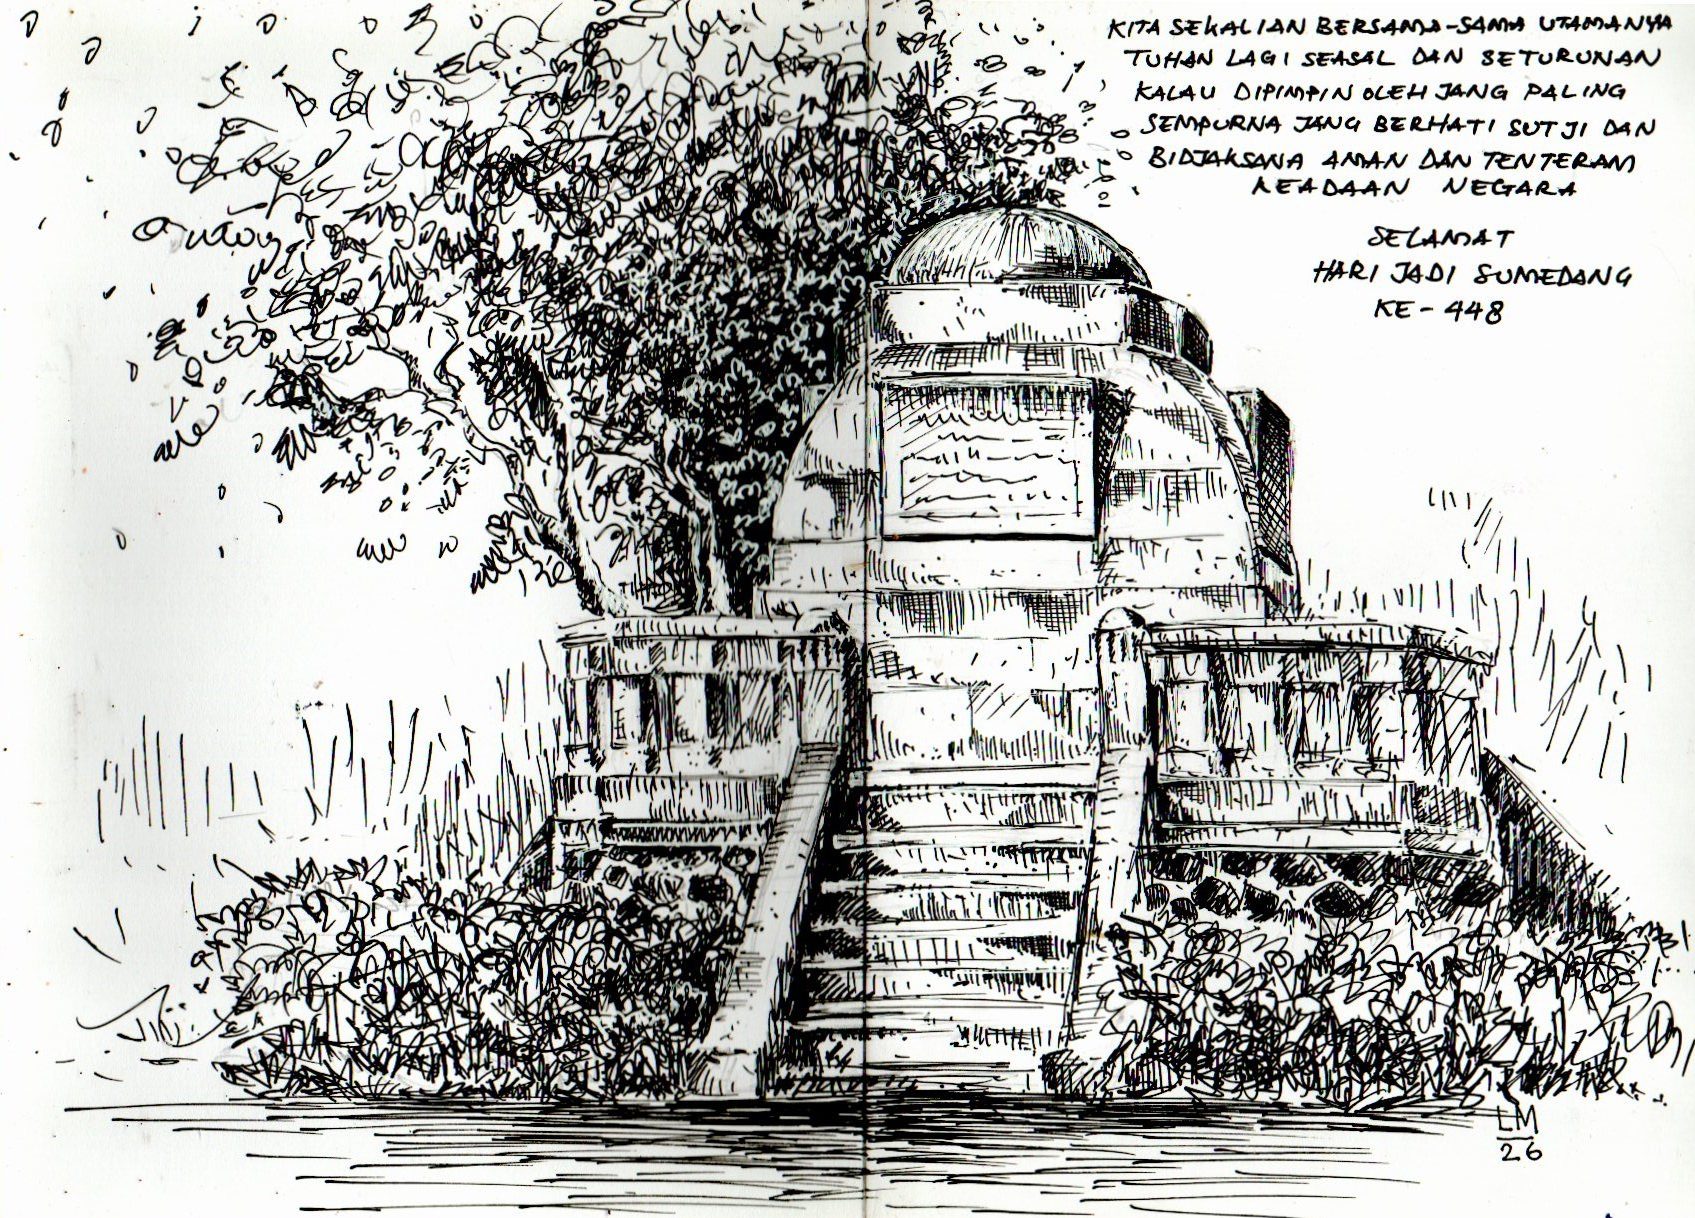 KITA SEKALIAN BERSAMA-SAMA UTAMANYA
TUHAN LAGI SEASAL DAN SETURUNAN
KALAU DIPIMPIN OLEH JANG PALING
SEMPURNA JANG BERHATI SUTJI DAN
BIDJAKSANA AMAN DAN TENTERAM
KEADAAN NEGARA
SELAMAT
HARI JADI SUMEDANG
KE-448
LM
26